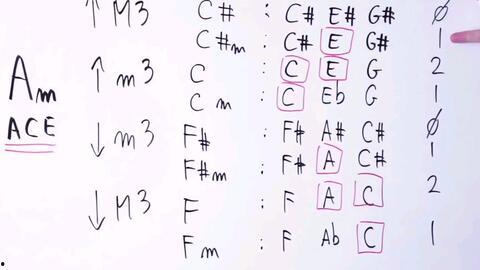 ↑ M3 C# : C# E# G# 0
C#m : C# E G# 1
Am ↑ m3 C : C E G 2
Cm : C Eb G 1
ACE ↓ m3 F# : F# A# C# 0
F#m : F# A C# 1
↓ M3 F : F A C 2
Fm : F Ab C 1